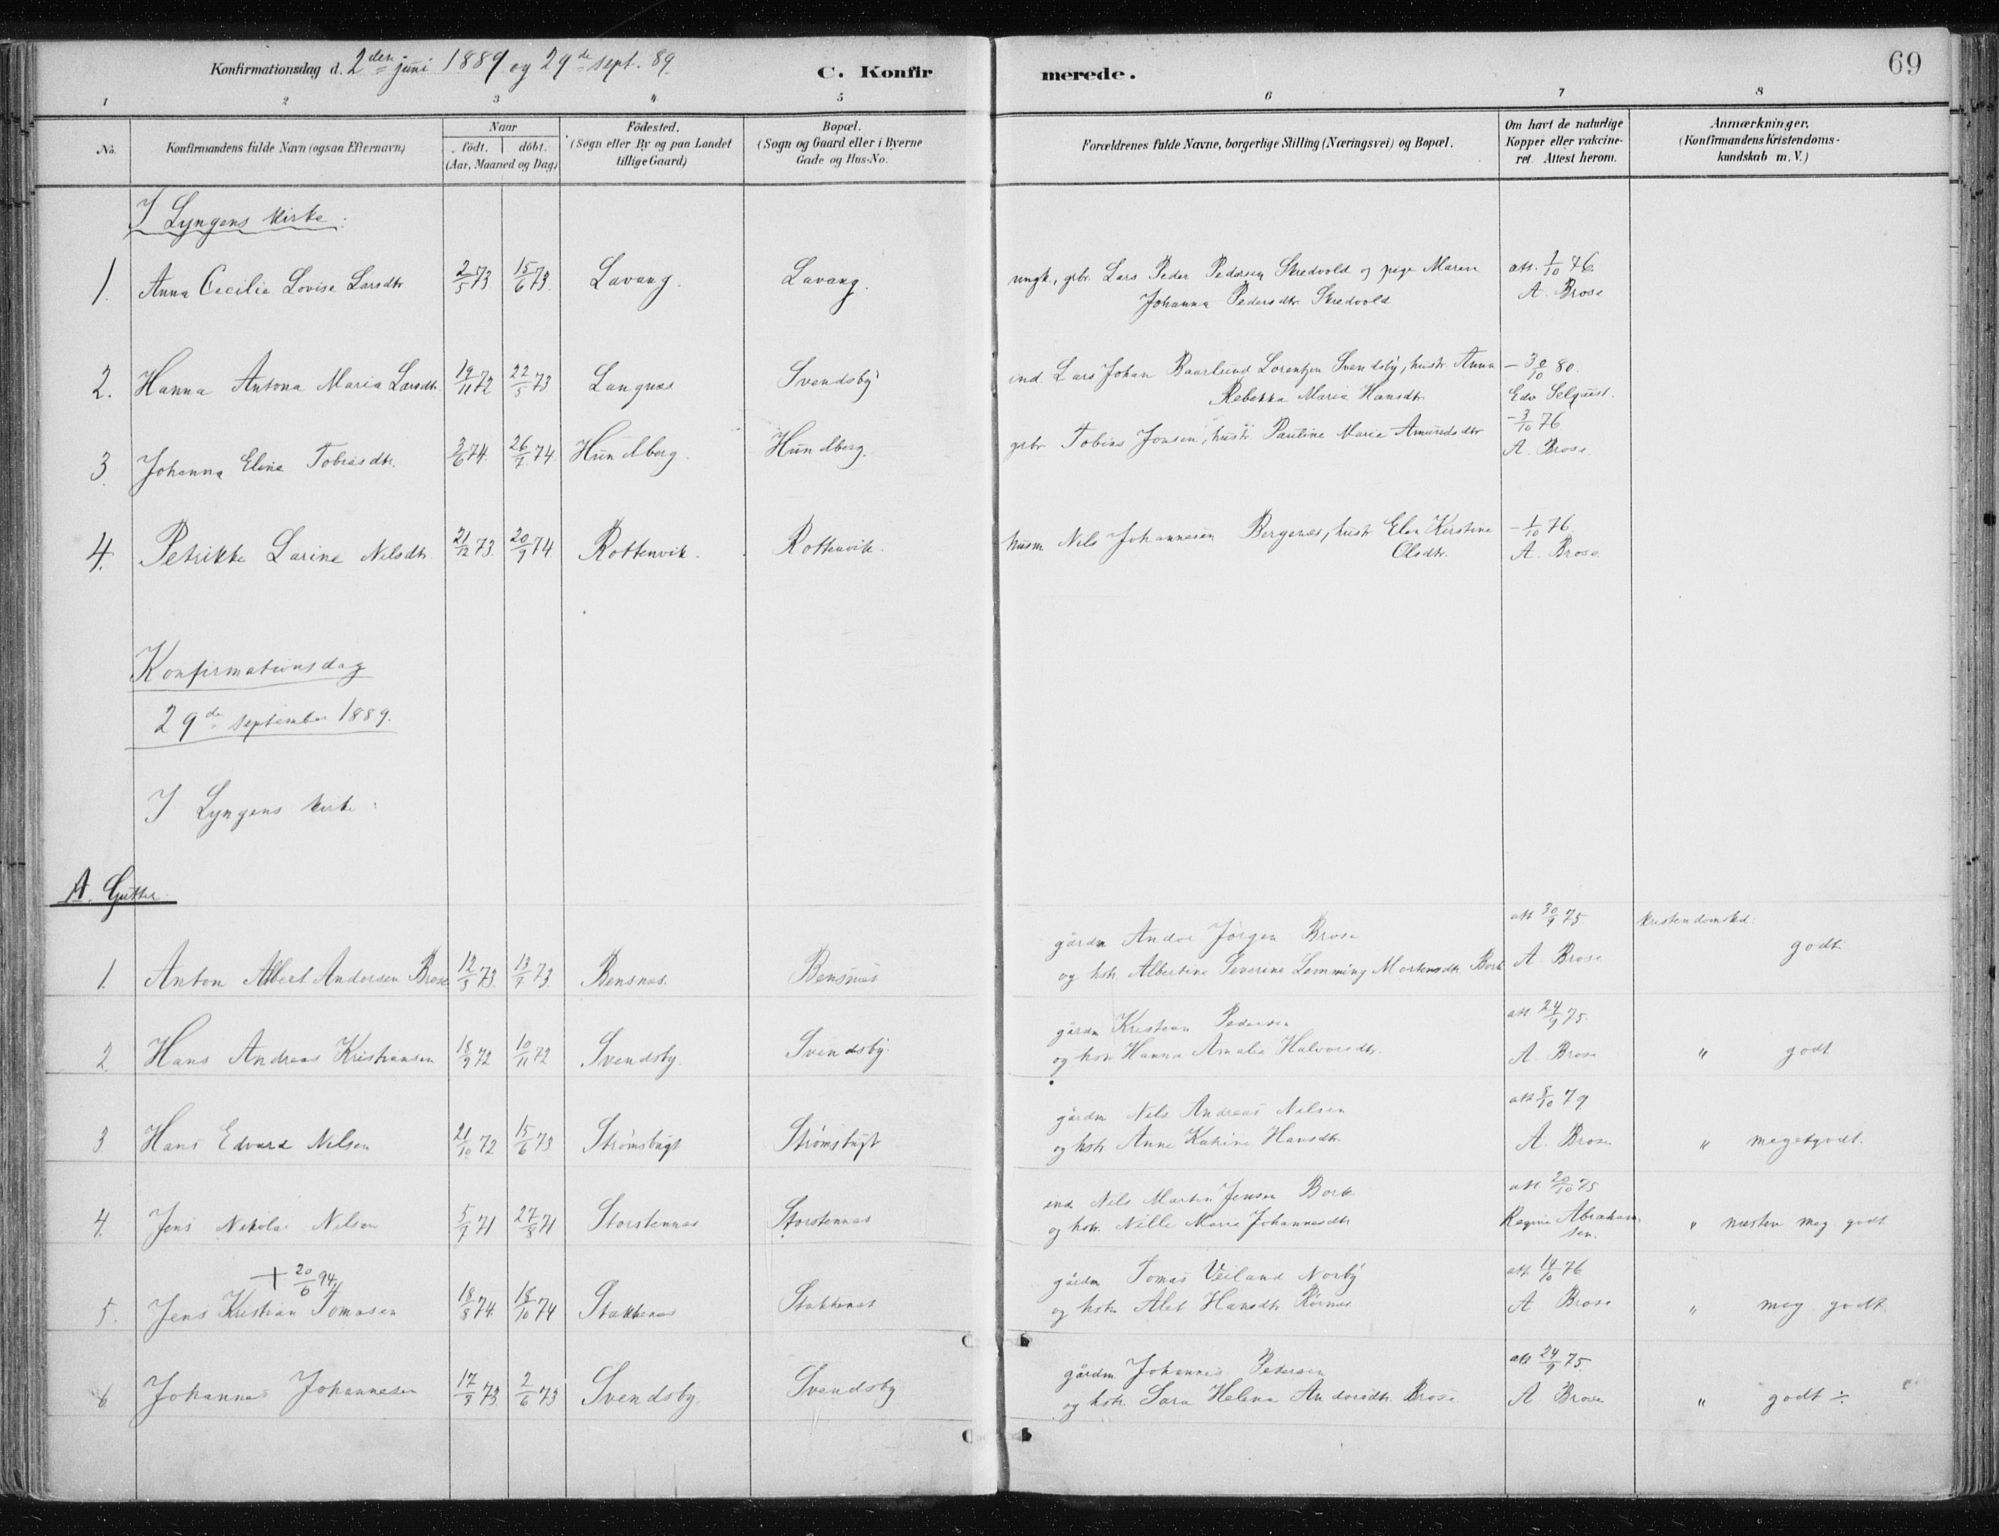 Konfirmationsdag d. 2den juni 1889 og 29de sept. 89. C. Konfirmerede. 69
1 2 3 4 5 6 7 8
No. Konfirmandens fulde Navn (ogsaa Efternavn) Naar født. døbt. (Aar, Maaned og Dag) Fødested. (Sogn eller By og paa Landet tillige Gaard) Bopæl. (Sogn og Gaard eller i Byerne Gade og Hus-No. Forældrenes fulde Navne, borgerlige Stilling (Næringsvei) og Bopæl. Om havt de naturlige Kopper eller vakcineret. Attest herom. Anmærkninger. (Konfirmandens Kristendomskundskab m. V.)
I Lyngens kirke:
1. Anna Cecilie Lovise Larsdtr 2/5 73. 15/6 73. Lavang. Lavang. ungk, gbr. Lars Peder Pedersen Skredvold og pige Maren att. 1/10 76
Johanna Pedersdtr Skredvold A. Brose
2. Hanna Antona Maria Larsdtr. 19/11 72 22/5 73 Langnæs Svendsby ind. Lars Johan Baarlund Lorentzen Svendsby, hustr. Anna – 30/10 80.
Rebekka Maria Hansdtr. Edv Selquist.
3. Johanna Eline Tobiasdtr. 3/6 74. 26/7 74. Hundberg. Hundberg. gbr Tobias Jonsen, hustr. Pauline Marie Amundsdtr – 3/10 76
A. Brose.
4. Petrikke Larine Nilsdtr. 21/12 73. 20/9 74 Rottenvik. Rottenvik. husm Nils Johannesen Bergenæs, hustr. Elen Kirstine – 1/10 76
Olsdtr. A. Brose.
Konfirmationsdag
29de september 1889.
I Lyngens kirke:
A. Gutter.
gårdm Andor Jørgen Brose att 30/9 75 kristendomskd:
1. Anton Albert Andorsen Brose 12/5 73. 13/7 73. Bensnæs. Bensnæs og hstr. Albertine Severine Lemming Mortensdtr Bork A. Brose godt.
gårdm Kristian Pedersen att 24/9 75.
2. Hans Andreas Kristiansen 18/9 72 10/11 72 Svendsby. Svendsby. og hstr Hanna Amalie Halvorsdtr. A. Brose " godt
gårdm Nils Andreas Nilsen att 8/10 79
3. Hans Edvard Nilsen 21/10 72 15/6 73 Strømsbugt Strømsbugt og hstr. Anne Katrine Hansdtr. A. Brose " megetgodt.
ind Nils Martin Jensen Bork att 20/10 75
4. Jens Nikolai Nilsen 5/7 71 27/8 71 Storstennæs Storstennæs og hstr. Nille Marie Johannesdtr Regine Abrahamsen. " næsten meg. godt
+ 20/6 94. gårdm Tomas Veiland Norby att 14/10 76
5. Jens Kristian Tomasen 18/8 74. 18/10 74 Stakkenæs Stakkenæs og hstr Alet Hansdtr Rørnæs A Brose " meg godt
gårdm. Johannes Pedersen att 24/9 75.
6 Johannes Johannesen 17/3 73. 2/6 73 Svendsby. Svendsby og hstr. Sara Helena Andorsdtr. Brose A Brose " godt ÷